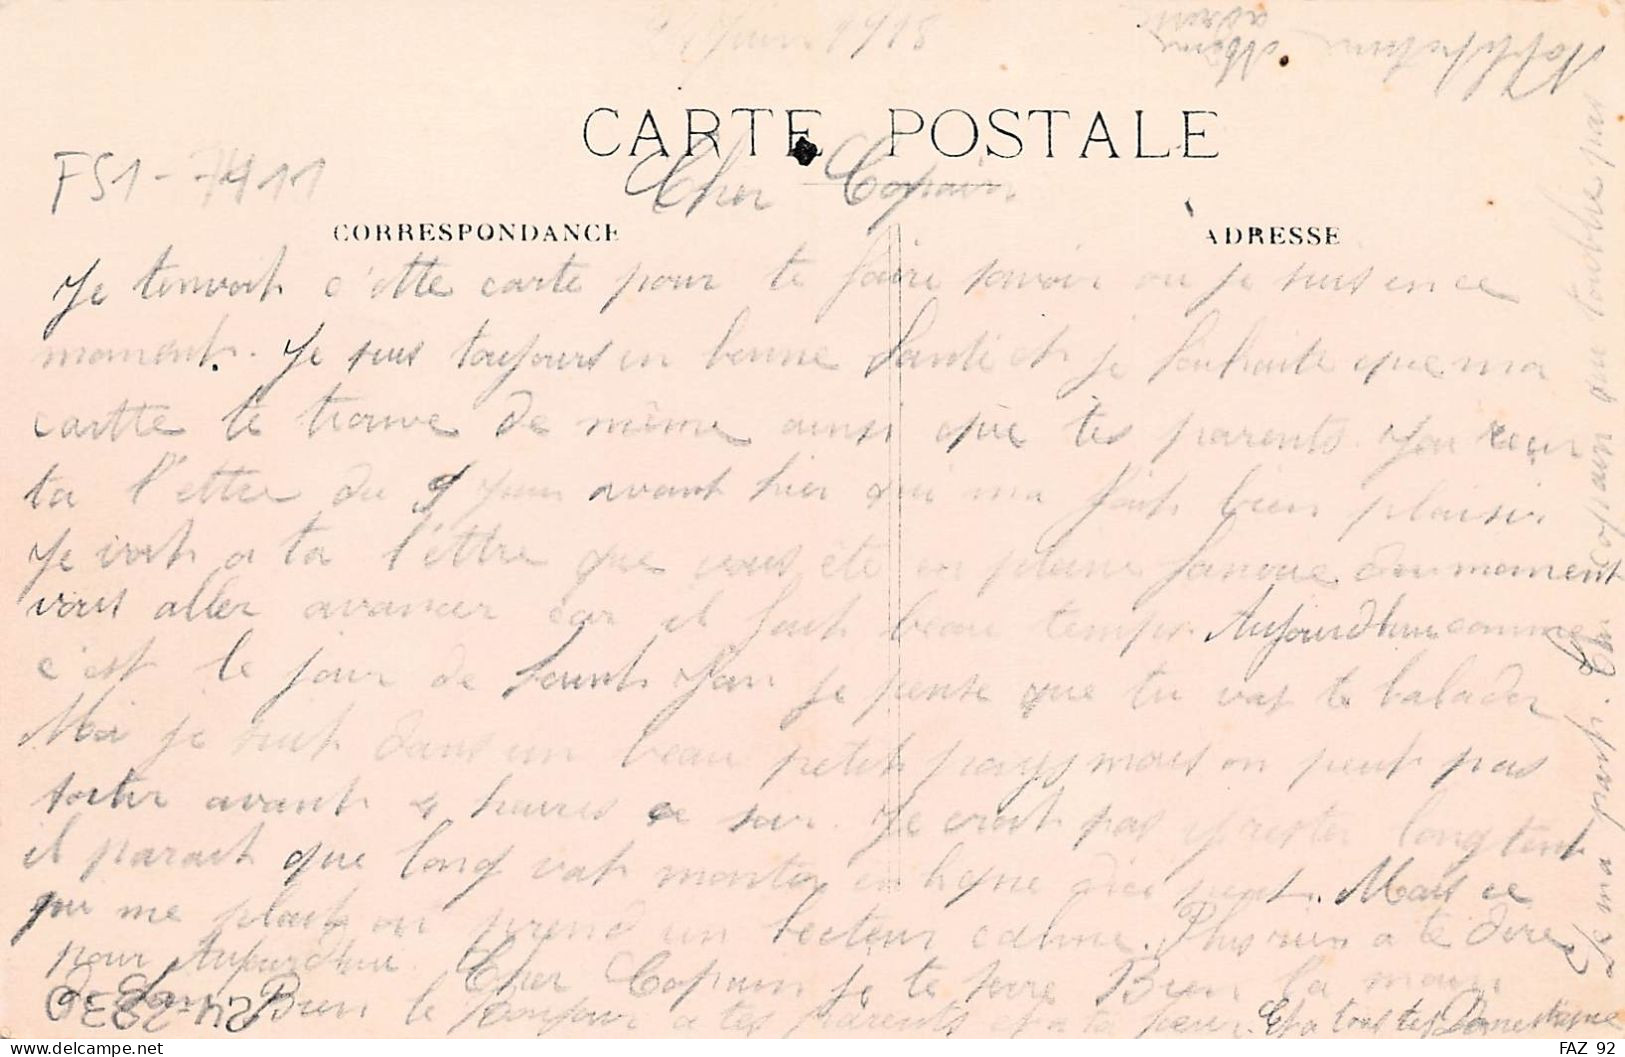 24 Juin 1918
même
adresse
CARTE POSTALE
FS1 - 7411
Cher Copain
CORRESPONDANCE
ADRESSE
Je tenvoit c'ette carte pour te faire savoir ou je suis en ce
moment. Je suis toujours en bonne Santé et je souhaite que ma
cartte te trouve de même ainsi que tes parents. Jou recur
ta l'ettre du 9 Juin avant hier qui ma fait bien plaisir
Je voit a ta l'ettre que vous ete en plaine fanoue
vous aller avancer car il fait beau temps. Aujourdhui comme
c'est le jour de Saint Jan je pense que tu vas te balader
Moi je suit dans un beau petit pays mais on peut pas
sortir avant 4 heures ce soir. Je croit pas y rester longtent
il parait que long vat monter en ligne dice peut. Mais ce
qui me plait on prend un secteur calme. Plus rien a te dire
pour Aujourdhui. Cher Copain je te serre Bien la main
Bien le bonjour a tes parents et a ta soeur. Et a tous tes Domestique
24-2830
De ma part. Cher copain que toublie pas
FAZ 92